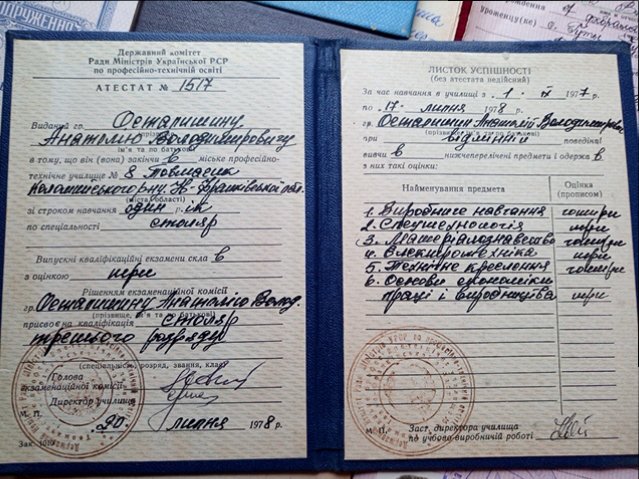 Державний комітет
Ради Міністрів Української РСР
по професійно-технічній освіті
АТЕСТАТ № 1517
Виданий гр. Остапишину
Анатолію Володимировичу
в тому, що він (вона) закінчив міське професійно-
технічне училище № 8 Товмацик
Коломийського р-ну Ів-Франківської обл.
зі строком навчання один рік
по спеціальності столяр
Випускні кваліфікаційні екзамени склав
з оцінкою
Рішенням екзаменаційної комісії
гр. Остапишину Анатолію Волод.
(прізвище, ім'я та по батькові)
присвоєна кваліфікація столяр
третього розряду
(спеціальність, розряд, звання, клас)
Голова
екзаменаційної комісії
Директор училища
М. П. 20 липня 1978 р.
ЛИСТОК УСПІШНОСТІ
(без атестата недійсний)
За час навчання в училищі з 1 1977 р.
по 17 липня 1978 р.
гр. Остапишин Анатолій Володимирович
(прізвище, ім'я та по батькові)
при відмінній поведінці
вивчив нижчеперелічені предмети і одержав
з них такі оцінки:
Найменування предмета Оцінка (прописом)
1. Виробниче навчання чотири
2. Спецтехнологія
3. Матеріалознавство чотири
4. Електротехніка
5. Технічне креслення чотири
6. Основи економіки
праці і виробництва
М. П. Заст. директора училища
по учбово-виробничій роботі